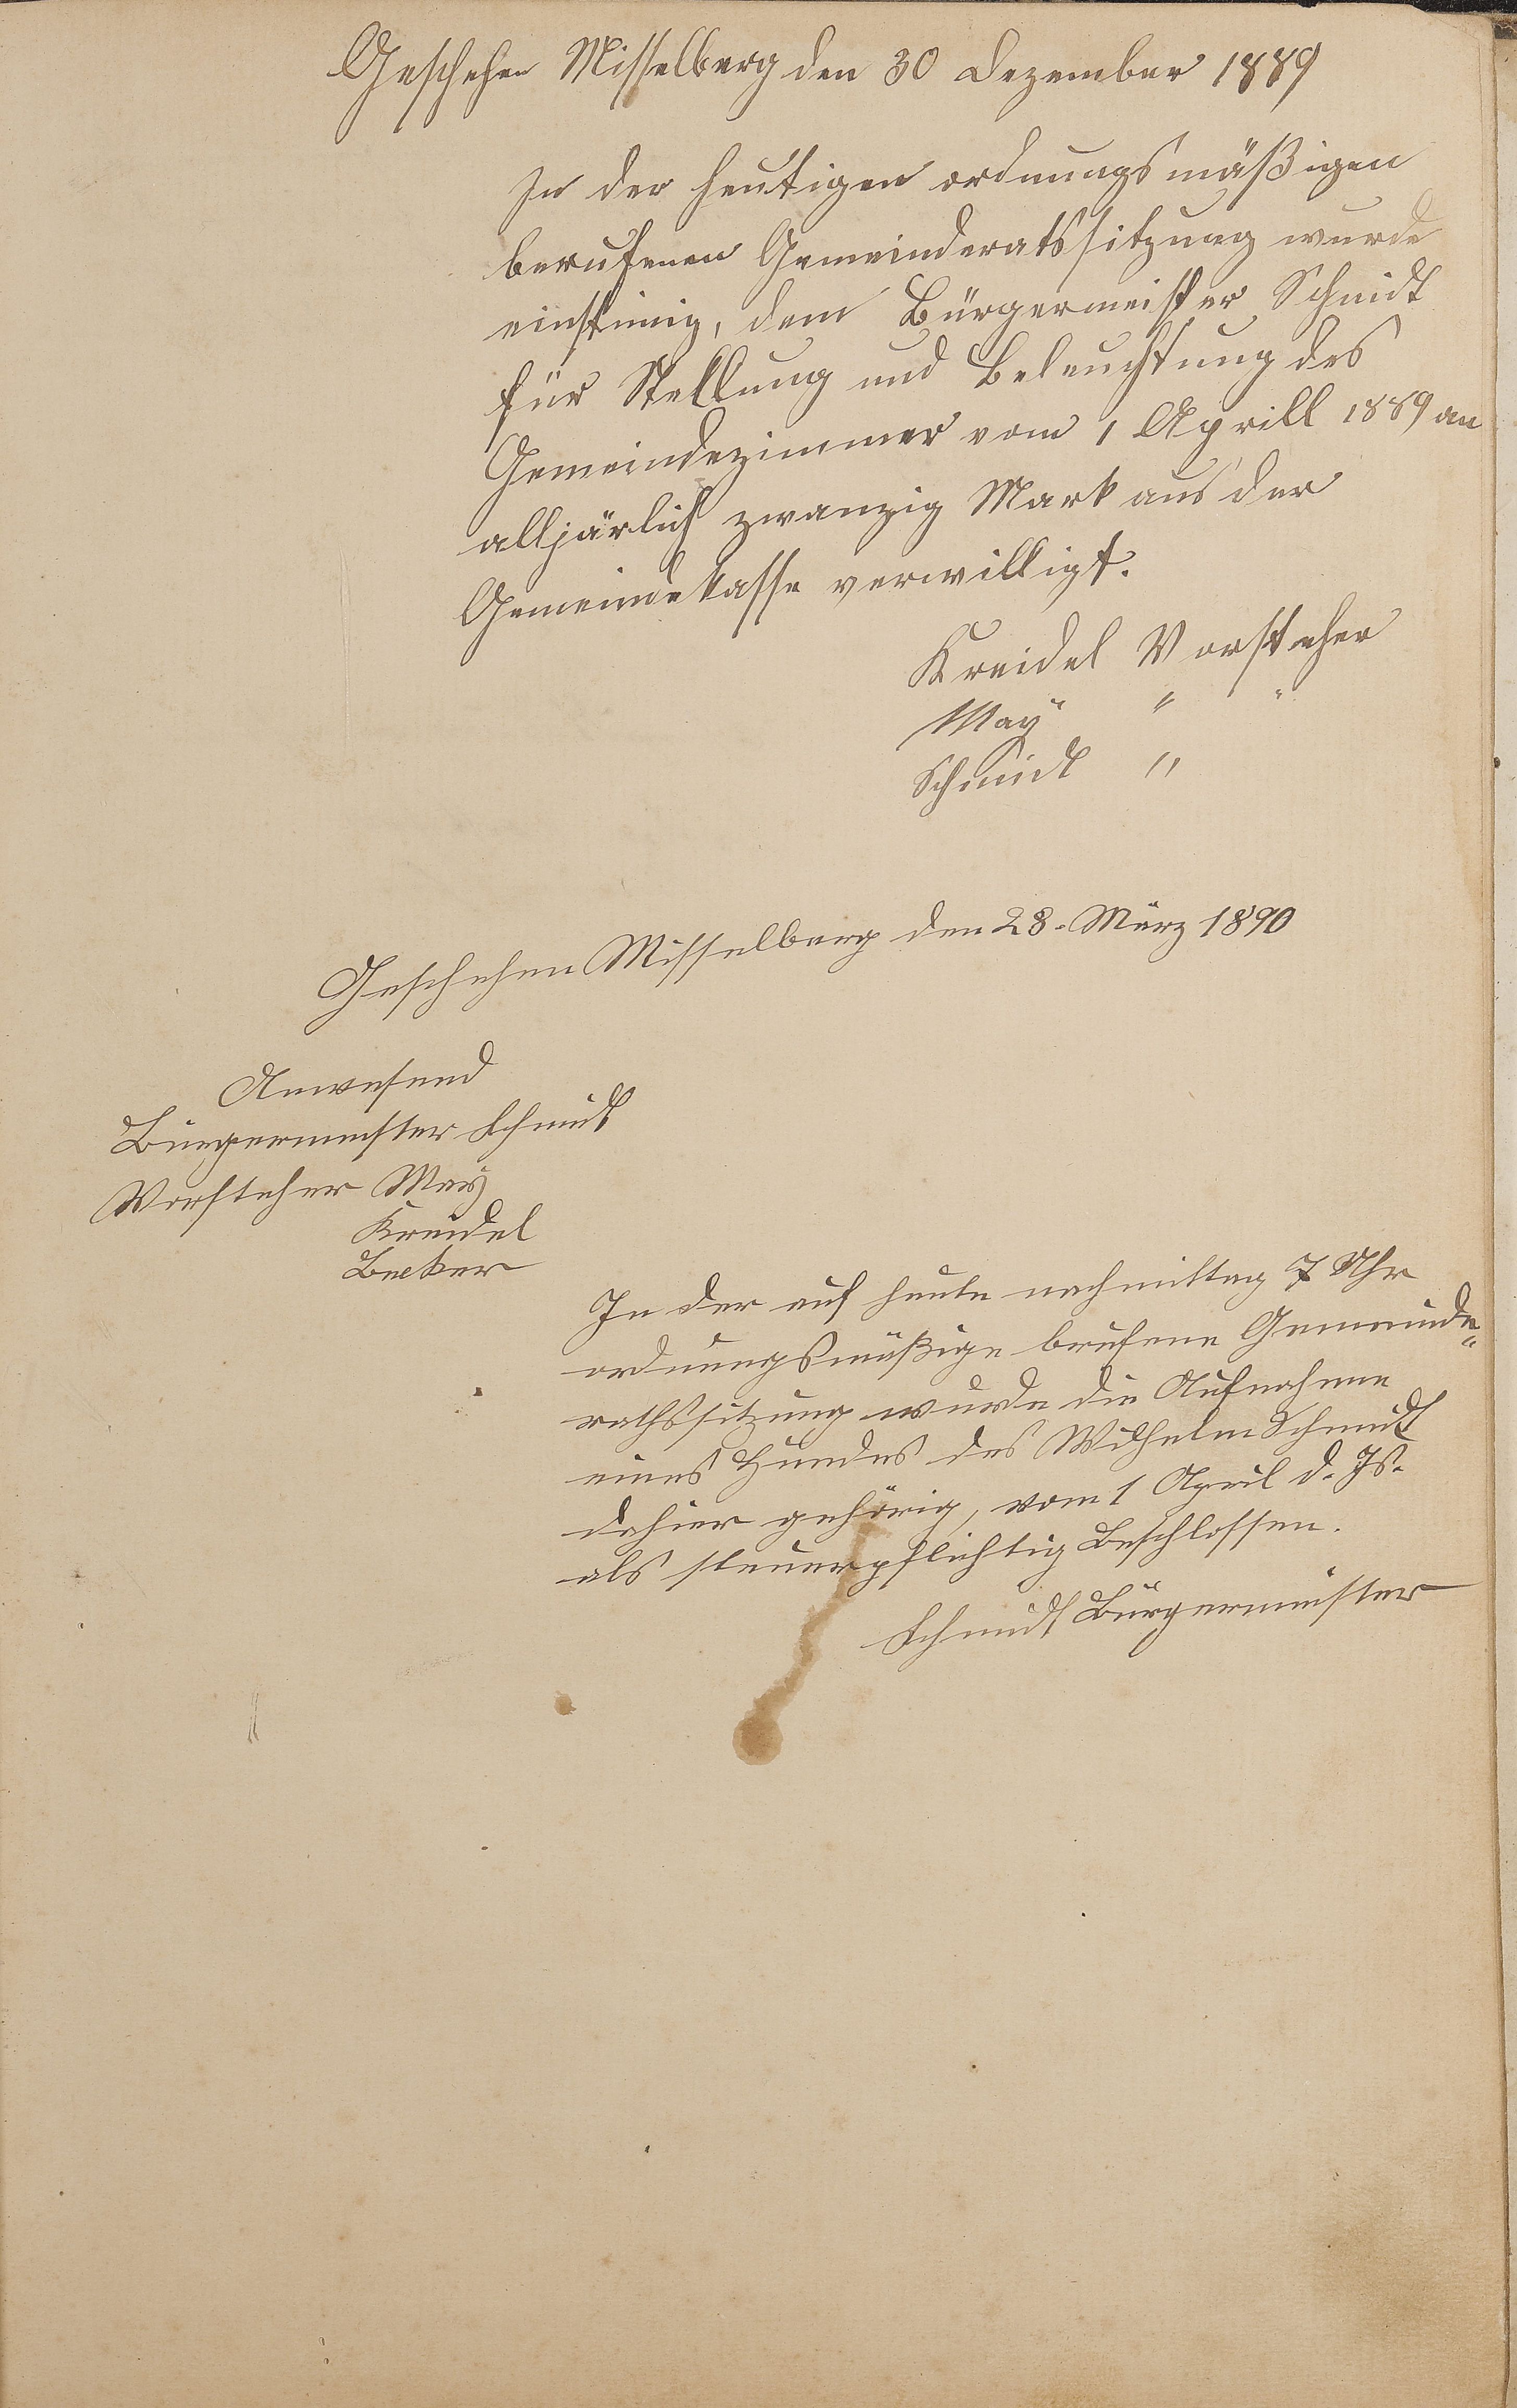 Geschehen Misselberg den 30 Dezember 1889
In der heutigen ordnungsmäßigen
berufenen Gemeinderatssitzung wurde
einstimig, dem Bürgermeister Schmidt
für Stellung und Beleuchtung des
Gemeindezimmer vom 1 Aprill 1889 an
alljärlich zwanzig Mark aus der
Gemeindekasse verwilligt.
Kreidel Vorsteher
May " "
Schmidt "
Geschehen Misselberg den 28. März 1890
Anwesend
Bürgermeister Schmidt
Vorsteher May
Kreidel
Becker
In der auf heute nachmittag 7 Uhr
ordnungsmäßige brufene Gemeinde-
rathssitzung wurde die Aufnahme
eines Hundes des Wilhelm Schmidt
dahier gehörig, vom 1 April d. Js.
als steuerpflichtig Beschlossen.
Schmidt Bürgermeister